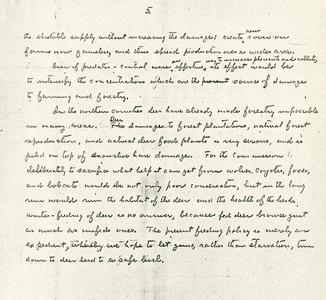 5
the shootable supply without increasing the damage: create new cover on
farms now gameless, and thus spread production over a wider area.
Even if predator-control were an effective way to increase pheasants and rabbits, its effect would be
to intensify the concentrations which are the present source of damage
to farming and forestry.
In the northern counties deer have already made forestry impossible
in many areas. Deer damage to forest plantations, natural forest
reproduction, and natural deer food plants is very serious, and is
piled on top of snowshoe hare damage. For the Commission
deliberately to sacrifice what help it can get from wolves, coyotes, foxes,
and bobcats would be not only poor conservation, but in the long
run would ruin the habitat of the deer and the health of the herds.
Winter-feeding of deer is no answer, because fed deer browse just
as much as unfed ones. The present feeding policy is merely an
expedient, whereby we hope to let guns, rather than starvation, trim
down the deer herd to a safe level.